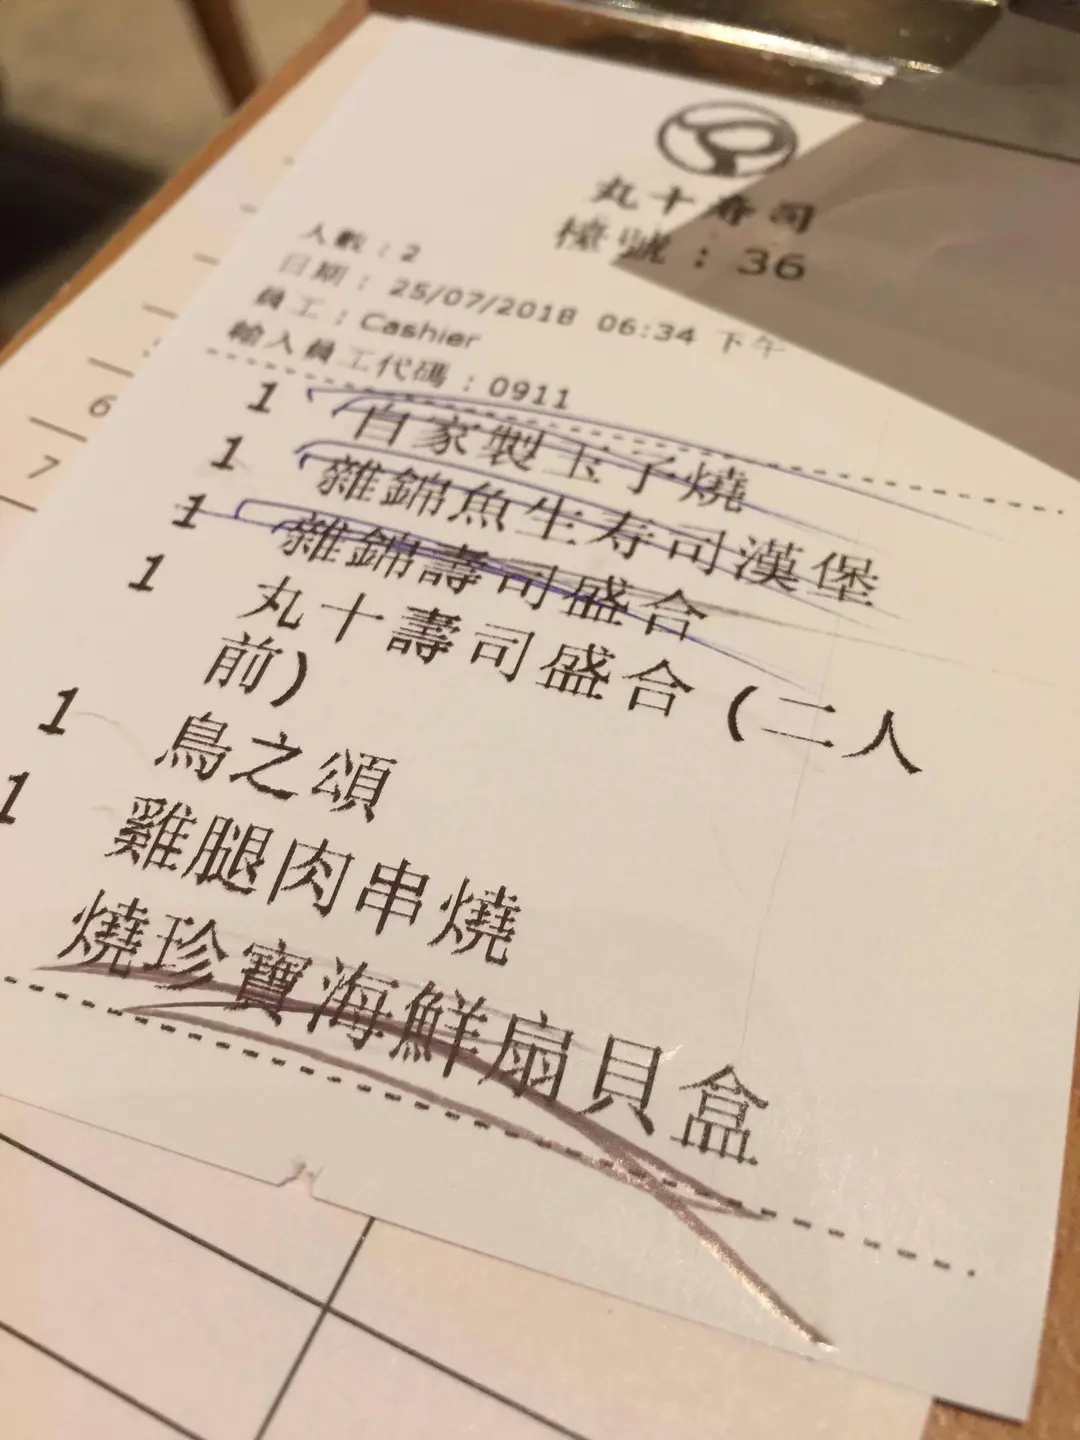 丸十寿司
檯號：36
人數：2
日期：25/07/2018 06:34 下午
員工：Cashier
輸入員工代碼：0911
1 自家製玉子燒
1 雜錦魚生寿司漢堡
1 雜錦壽司盛合
1 丸十壽司盛合(二人
前)
1 鳥之頌
1 雞腿肉串燒
燒珍寶海鮮扇貝盒
6
7